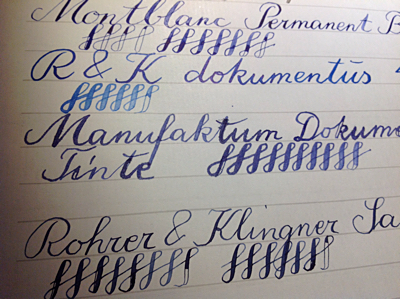 Montblanc Permanent B
R & K dokumentus
Manufaktum Dokume
Tinte
Rohrer & Klingner Sa